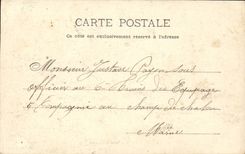 CARTE POSTALE
Ce côté est exclusivement réservé à l'adresse
Monsieur Gustave Payen sous
officier au des Equipages
Compagnie au champ de
Marne